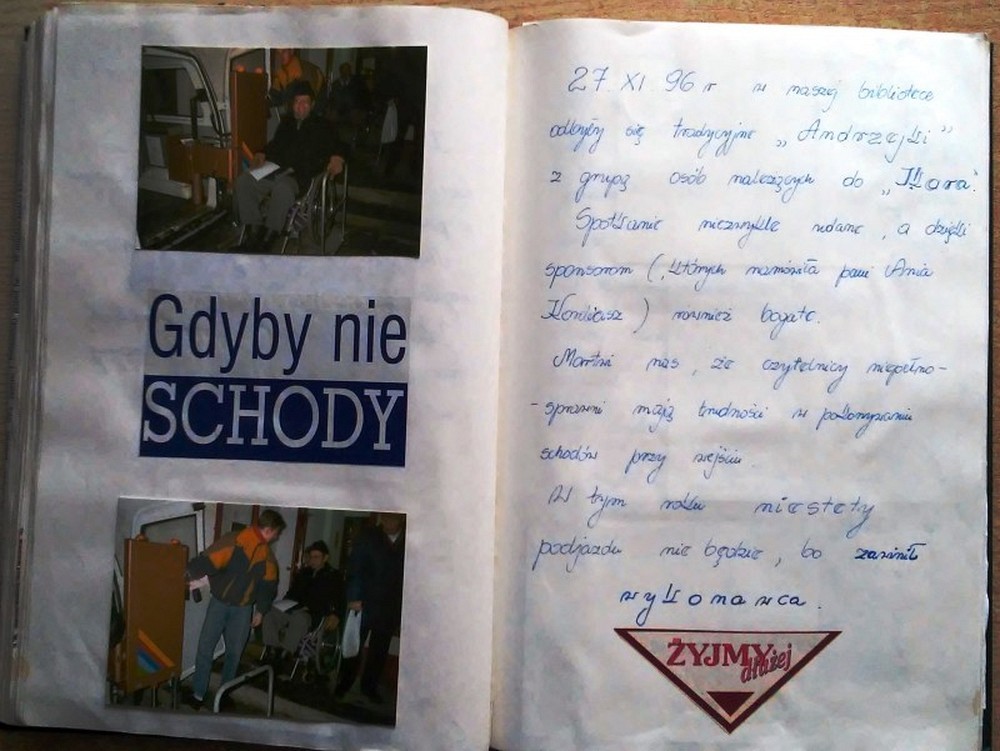 Gdyby nie
SCHODY
27. XI 96 r w naszej bibliotece
odbyły się tradycyjne „Andrzejki”
z grupą osób należących do „Ikara”.
Spotkanie niezwykle udane, a dzięki
sponsorom (, których namówiła pani Ania
) również bogate.
Martwi nas, że czytelnicy niepełno-
-sprawni mają trudności w pokonywaniu
schodów przy wejściu.
W tym roku niestety
podjazdu nie będzie, bo zawinił
wykonawca.
ŻYJMY
dłużej